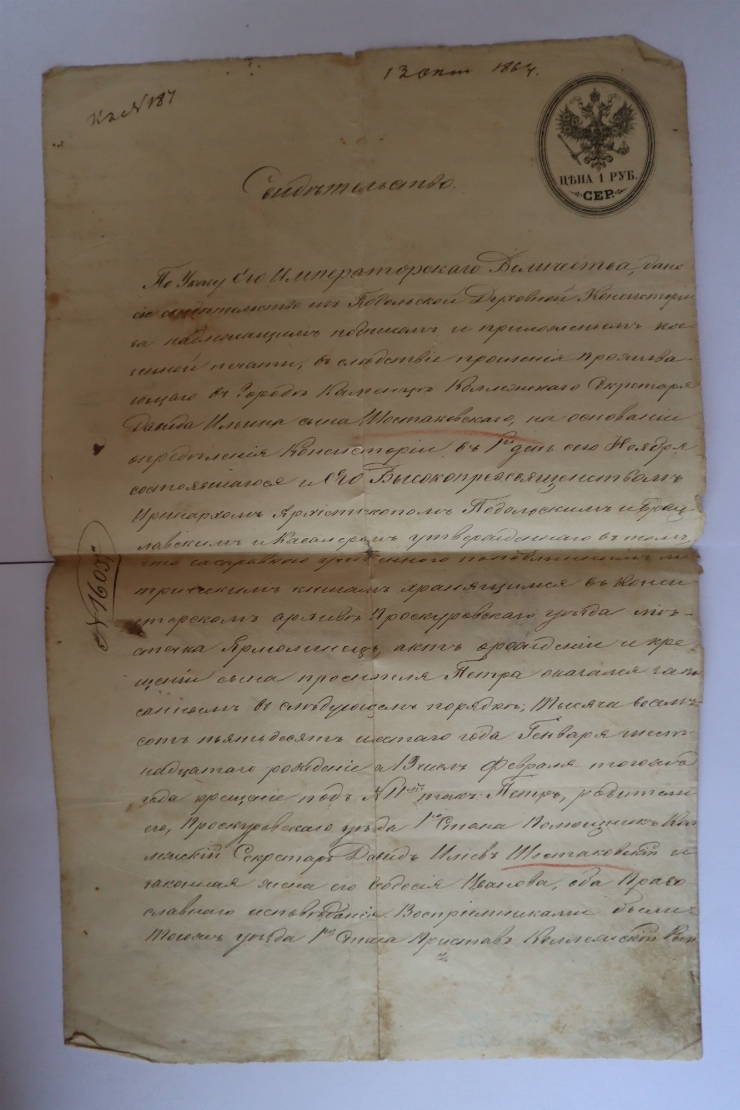 къ № 187
13 окт 1864.
ЦѢНА 1 РУБ.
СЕР.
Свидѣтельство.
По Указу Его Императорскаго Величества, дано
сіе свидѣтельство изъ Подольской Духовной Консисторіи
за надлежащимъ подписомъ и приложеніемъ ка-
зенной печати, въ слѣдствіе прошенія прожива-
ющаго въ городѣ Каменцѣ Коллежскаго Секретаря
Давида Ильина сына Шостаковскаго, на основаніи
опредѣленія Консисторіи въ 1й день сего Ноября
состоявшагося и Его Высокопреосвященствомъ
Иринархомъ Архіепископомъ Подольскимъ и Брац-
лавскимъ и Кавалеромъ утвержденнаго въ томъ,
что
трическимъ книгамъ хранящимся въ Конси
сторскомъ архивѣ Проскуровскаго уѣзда мѣ-
стечка Ярмолинецъ, актъ о рожденіи и кре-
щеніи сына просителя Петра оказался запи
саннымъ въ слѣдующемъ порядкѣ; тысяча восемъ-
сотъ пятьдесятъ шестаго года Генваря шест
надцатаго рожденіе а 13 числъ Февраля того жъ
года крещеніе подъ № 11мъ такъ: Петръ, родители
его, Проскуровскаго уѣзда 1го Стана Помощникъ Кол
лежскій Секретарь Давидъ Иліевъ Шостаковскій и
законная жена его Ѳодосія Иванова, оба Право
славнаго исповѣданія. Воспріемниками были:
Тогожъ уѣзда 1го Стана Приставъ Коллежскій
№ 16035